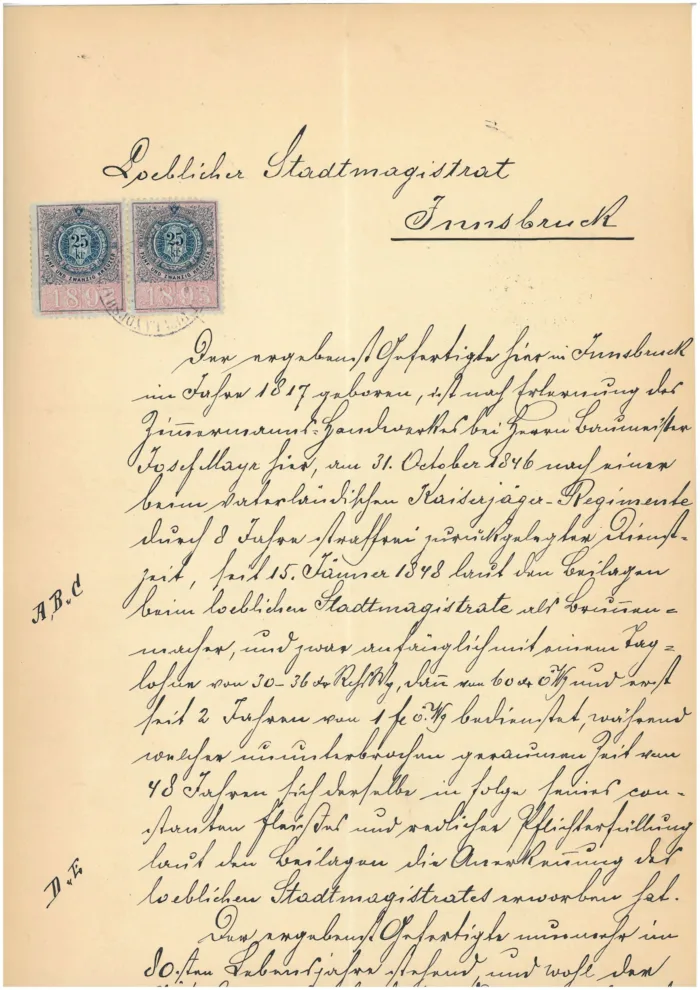 Loeblicher Stadtmagistrat
Innsbruck
25
Kr
FÜNF UND ZWANZIG KREUZER
1895
25
Kr
FÜNF UND ZWANZIG KREUZER
1895
Der ergebenst Gefertigte hier in Innsbruck
im Jahre 1817 geboren, ist nach Erlernung des
Zim̄ermanns-Handwerkes bei Herrn Baumeister
Josef Mayr hier, am 31. October 1846 nach einer
beim vaterländischen Kaiserjäger-Regimente
durch 8 Jahre straffrei zurückgelegter Dienst-
zeit, seit 15. Jänner 1848 laut den Beilagen
A, B, C
beim loeblichen Stadtmagistrate als Brun̄en=
macher, und zwar anfänglich mit einem Tag=
lohne von 30-36 xr RchsWg, dan̄ von 60 xr ö.Wg und erst
seit 2 Jahren von 1 fl ö.Wg bedienstet, während
welcher ununterbrochen geraumen Zeit von
48 Jahren sich derselbe in folge seines con-
stanten Fleißes und redlicher Pflichterfüllung
laut den Beilagen die Anerken̄ung des
D, E
loeblichen Stadtmagistrates erworben hat.
Der ergebenst Gefertigte nunmehr im
80.sten Lebensjahre stehend, und wohl der